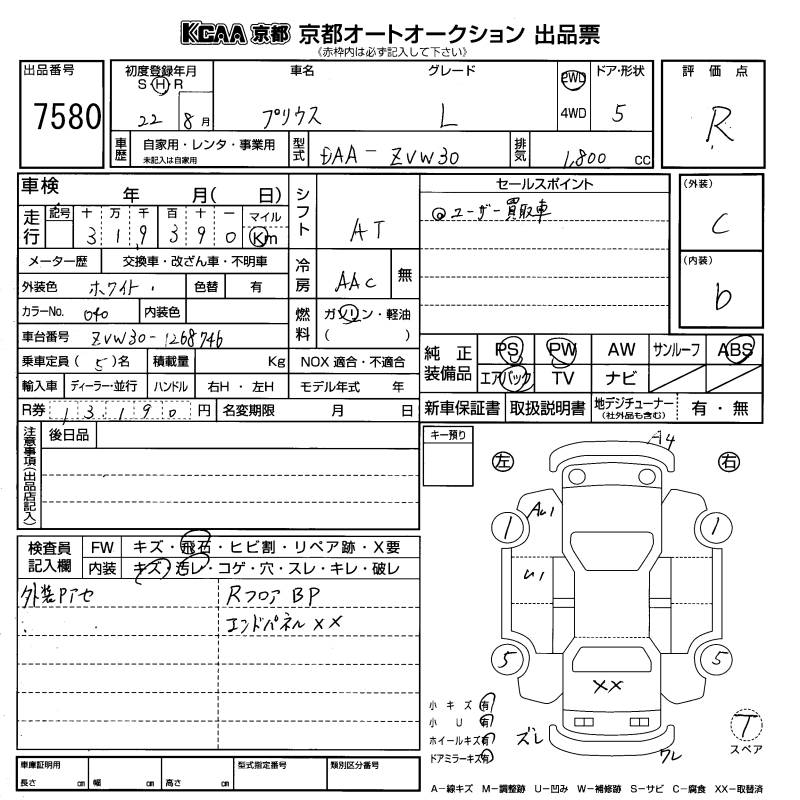 KCAA 京都 京都オートオークション 出品票
(赤枠内は必ず記入して下さい)
出品番号 初度登録年月 車名 グレード 2WD ドア・形状 評価点
S H R
7580 22 8月 プリウス L 4WD 5 R
車歴 自家用・レンタ・事業用 型式 DAA-ZVW30 排気 1,800 cc
未記入は自家用
車検 年 月( 日) シフト AT セールスポイント (外装)
走行 記号 十 万 千 百 十 一 マイル ユーザー買取車 C
3 1 9 3 9 0 Km
メーター歴 交換車・改ざん車・不明車 冷房 AAC 無 (内装)
外装色 ホワイト 色替 有 b
カラーNo. 040 内装色 燃料 ガソリン・軽油
車台番号 ZVW30-1268746 ( )
乗車定員 (5)名 積載量 Kg NOX 適合・不適合 純正装備品 PS PW AW サンルーフ ABS
輸入車 ディーラー・並行 ハンドル 右H・左H モデル年式 年 エアバック TV ナビ
R券 13190円 名変期限 月 日 新車保証書 取扱説明書 地デジチューナー 有・無
(社外品も含む)
注意事項(出品店記入) 後日品 キー預り
A4
左 右
AU1
1 1
検査員記入欄 FW キズ・飛石・ヒビ割・リペア跡・X要
内装 キズ・汚レ・コゲ・穴・スレ・キレ・破レ
U1
外装Pアセ RフロアBP
エンドパネルXX
5 5
XX
小キズ有
小U有
ホイールキズ有
ドアミラーキズ有
ズレ ワレ
T
スペア
車庫証明用 型式指定番号 類別区分番号
長さ cm 幅 cm 高さ cm
A-線キズ M-調整跡 U-凹み W-補修跡 S-サビ C-腐食 XX-取替済